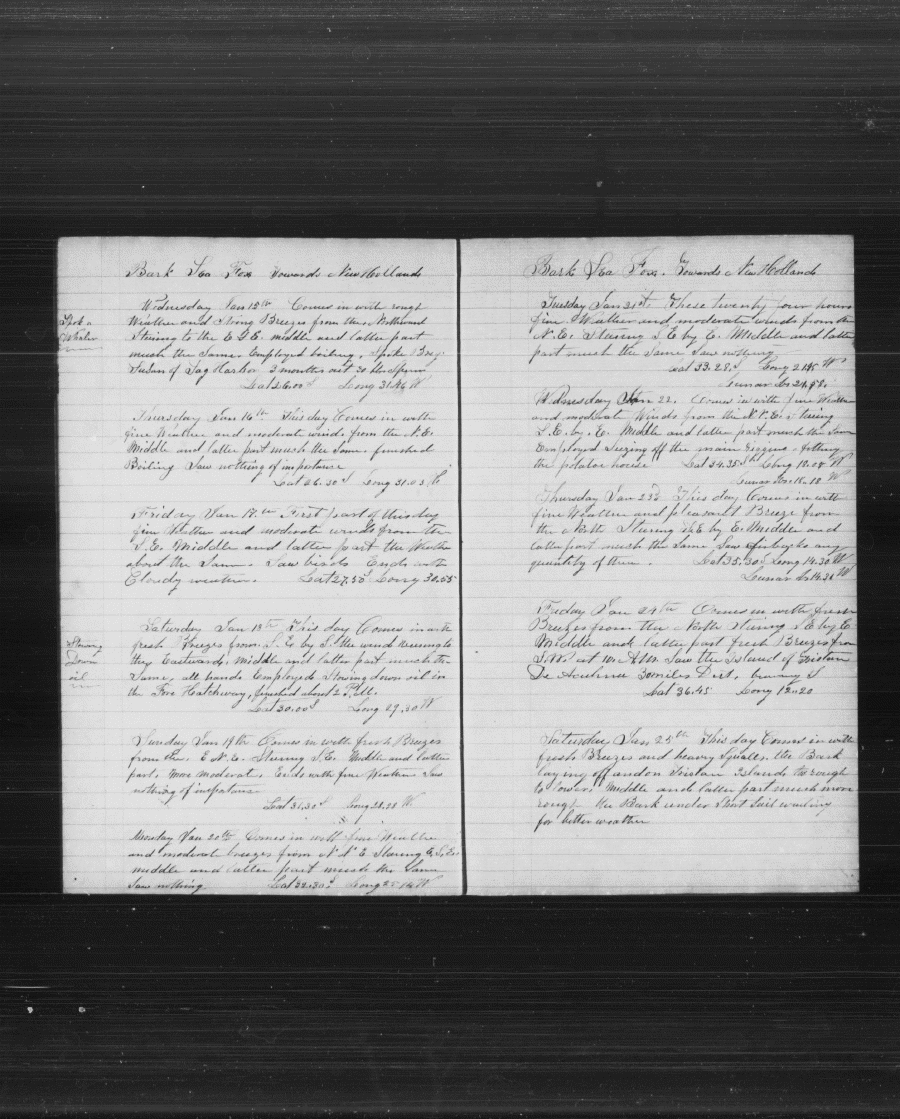 Bark Sea Fox Towards New Holland
Wednesday Jan 15th Comes in with rough
Weather and strong Breezes from the Northward
Stering to the E S E. middle and latter part
Spok a
Whaler
mush the Same. Employed boiling, Spoke Brig
Susan of Sag Harbor 3 months out 30 bls Sperm
Lat 26.00 S Long 31.46 W
Thursday Jan 16th This day Comes in with
fine Weather and moderate winds from the N.E.
Middle and latter part mush the Same, finished
Boiling Saw nothing of importance
Lat 26.30 S Long 31.03 W
Friday Jan 17th First part of this day
fine Weather and moderate winds from the
S.E. Middle and latter part the Weather
about the Same. Saw birds Ends with
Cloudy weather. Lat 27.50 S Long 30.55
Saturday Jan 18th This day Comes in with
fresh Breezes from S.E. by S. the wind
Stowing
Down
oil
the Eastward, Middle and latter part mush the
Same, all hands Employed Stowing down oil in
the Fore Hatchway, finished about 2 P.M.
Lat 30.00 S Long 29.30 W
Sunday Jan 19th Comes in with fresh Breezes
from the E.N.E. Stering S.E. Middle and latter
part, more moderate. Ends with fine Weather Saw
nothing of importance
Lat 31.30 S Long 28.28 W
Monday Jan 20th Comes in with fine Weather
and moderate breezes from N.N.E. Stering
middle and latter part mush the Same
Saw nothing Lat 32.30 S Long 25.14 W
Bark Sea Fox. Towards New Holland
Tuesday Jan 21st. These twenty four hours
fine Weather and moderate winds from the
N.E. Stering S.E by E. Middle and latter
part mush the Same Saw nothing
Lat 33.28 S Long W
Lunar
Wednesday Jan 22. Comes in with fine Weather
and moderate Winds from the N.N.E. Stering
S.E. by E. Middle and latter part mush the Same
Employed Seizing off the main Rigging,
the potatoe house Lat 34.35 S Long 18.08 W
Lunar 18.18 W
Thursday Jan 23d This day Comes in with
fine Weather and pleasant Breeze from
the North Stering S.E by E. Middle and
latter part mush the Same Saw finbacks any
quantity of them. Lat 35.30 S Long 14.30 W
Lunar 14.30 W
Friday Jan 24th Comes in with fresh
Breezes from the North stering S.E by E.
Middle and latter part fresh Breezes from
at 10 A.M. Saw the island of Tristan
De Acuhna 30 miles Dist, bearing S
Lat 36.45 Long 12.20
Saturday Jan 25th This day Comes in with
fresh Breezes and heavy Squalls, the Bark
laying off and on Tristan Islands to rough
to lower, Middle and latter part much more
rough, the Bark under Short Sail waiting
for better weather